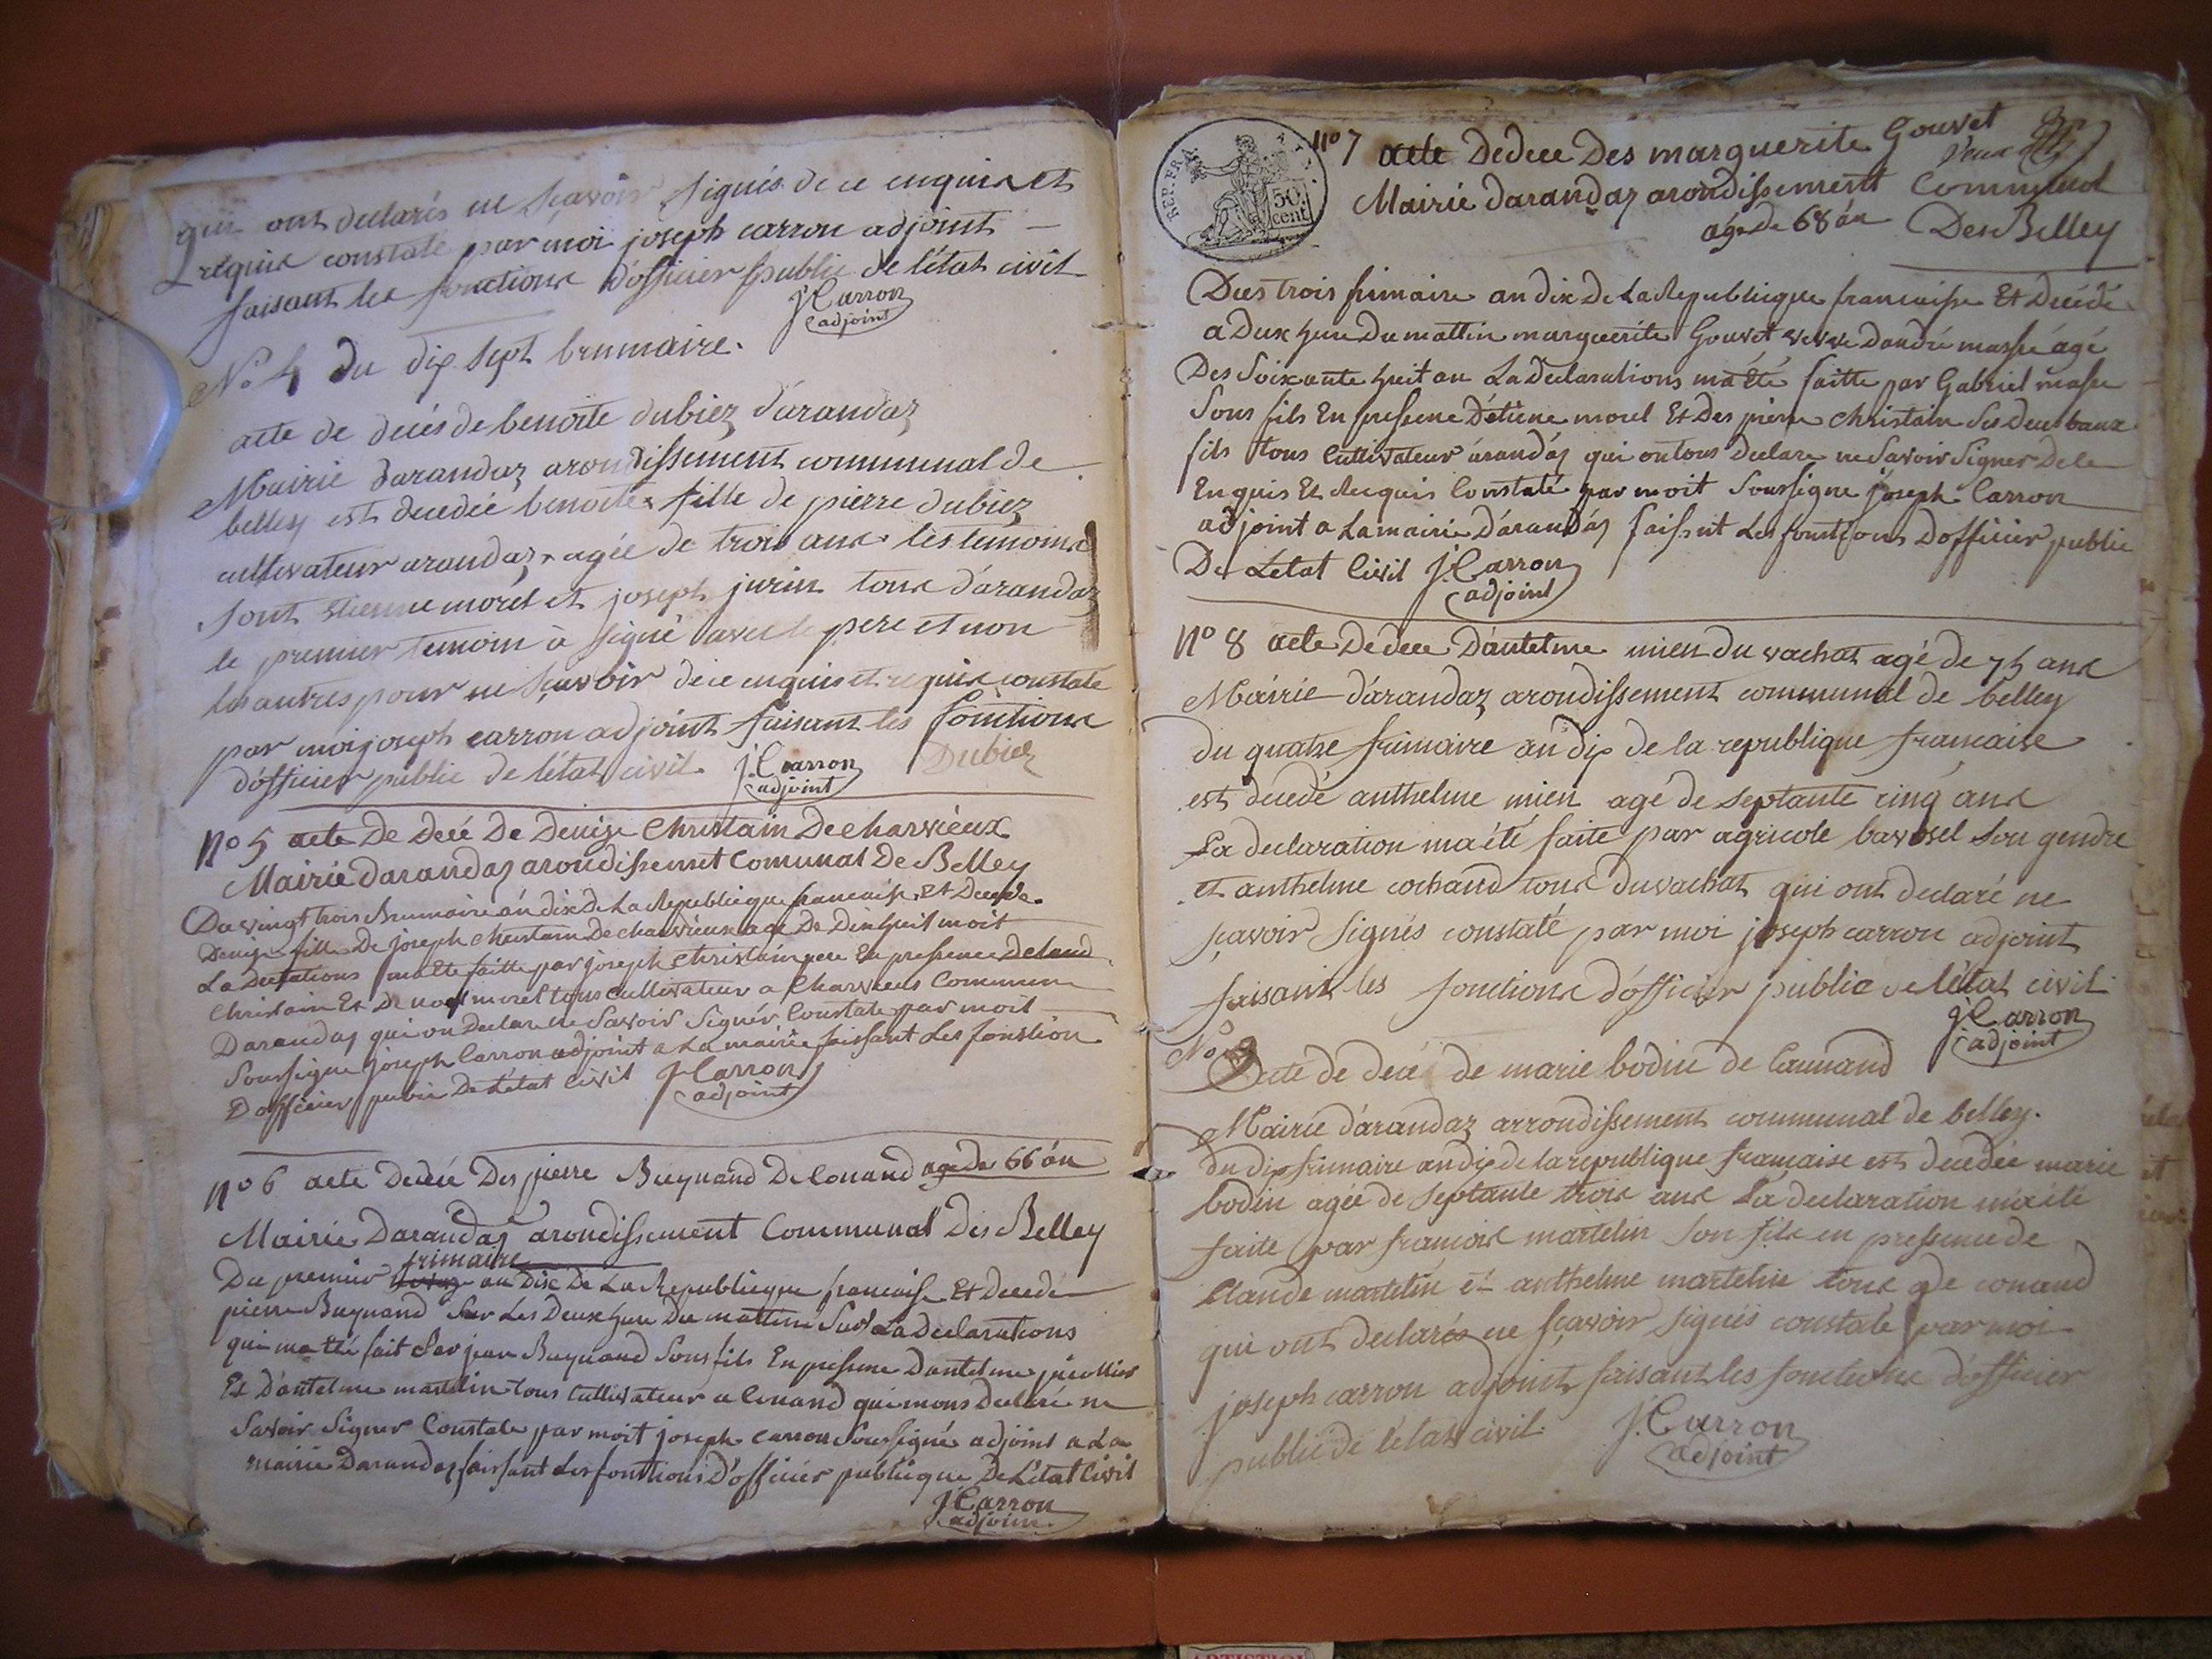 qui ont declarés ne sçavoir signés de ce enquis et
requis constaté par moi joseph carron adjoint
faisant les fonctions d'officier public de l'état civil
J. Carron
adjoint
No 4 du dix sept brumaire.
acte de decés de benoite dubiez d'arandaz
Mairie darandaz arondissement communal de
belley est decedée benoite fille de pierre dubiez
cultivateur arandaz agée de trois ans les temoins
sont etienne morel et joseph jurin tous d'arandaz
le premier temoin à signé avec le pere et non
les autres pour ne sçavoir de ce enquis et requis constate
par moi joseph carron adjoint faisant les fonctions
d'officier public de l'état civil. J. Carron Dubiez
adjoint
No 5 acte De decé De Denize Christain De charvieux
Mairie darandaz arondissemet Comunal De Belley
Du vingt trois Brumaire an dix De La Republicque francaise Et Decede
Denize fille De joseph christain De charvieux age De Dix huit moit
La Declations ma Ete faitte par joseph christain pere En pressence De laud
christain Et De noel morel tous cultivateur a Charvieux Commune
Darandaz qui on Declare Ne Savoir Signér Constate par moit
Soussigne joseph Carron adjoint a La mairie faissant Les fonstion
D officier public De L'état Civil J. Carron
adjoint
No 6 acte Decée Des pierre Buynand De Conand age de 66 án
Mairie Darandaz arondissement Communal Des Belley
frimaire
Du premier an Dix De La Republicque francaise Et Decede
pierre Buynand Sur Les Deux hure Du mattin Sur La Declarations
qui ma été fait Par jean Buynand Sons fils En pressence Dantelme
Et D'antelme martelin tous Cultivateur a Conand qui mons Declaré ne
Savoir Signer Constate par moit joseph carron Soussigné adjoint a La
mairie Darandaz faissant Les fonttions D'officier publicque De L'état Civil
J. Carron
adjoint
REP. FRA.
50
cent
No 7 acte De decee Des marguerite Gouvet
veuve
Mairie darandaz arondissement Communal
agé de 68 án Des Belley
Dus trois frimaire an dix De La Republicque francaisse Et Decédé
a Dux hure Du mattin marguerite Gouvet vevve Dandré masse agé
Des Soixante huit an La Declarations ma Eté faitte par Gabriel masse
Sons fils En pressence D'étiene morel Et Des pierre Christain Ses Deux baux
fils tous Cultivateur arandáz qui on tous Declare ne Savoir Signer De Ce
Enquis Et Requis Constaté par moit Soussigne joseph Carron
adjoint a La mairie D'arandáz faissnt Les fonstions Dofficier public
De L'état Civil J. Carron
adjoint
No 8 acte De dece D'antelme mien du vachat agé de 75 ans
Mairie d'arandaz arondissement communal de belley
du quatre frimaire an dix de la republique francaise
est decedé anthelme mien agé de septante cinq ans
La declaration ma été faite par agricole bavosel son gendre
et anthelme cochand tous du vachat qui ont declaré ne
sçavoir signés constaté par moi joseph carron adjoint
faisant les fonctions d'officier public de l'état civil
J. Carron
adjoint
No 9
Acte de decé de marie bodin de Counand
Mairie d'arandaz arrondissement communal de belley.
du dix frimaire an dix de la republique francaise est decedée marie
bodin agée de septante trois ans La declaration ma été
faite par francois martelin son fils en pressence de
Claude martelin et anthelme martelin tous de conand
qui ont declarés ne sçavoir signés constaté par moi
joseph carron adjoint faisant les fonctions d'officier
public de l'état civil. J. Carron
adjoint